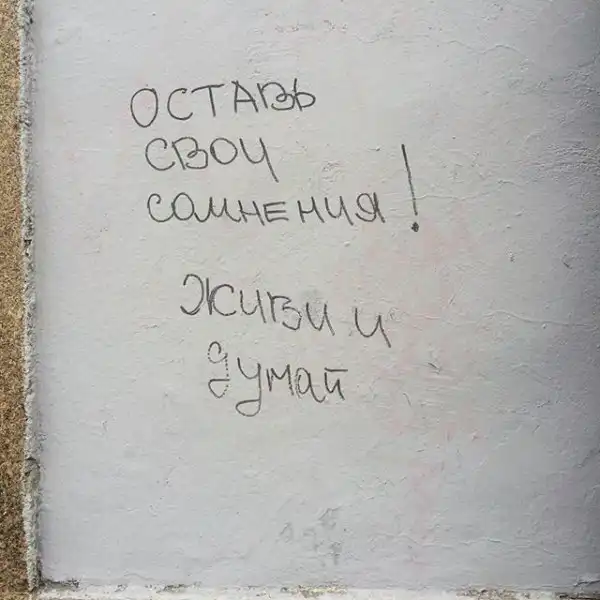 ОСТАВЬ
СВОИ
СОМНЕНИЯ!
ЖИВИ И
думай